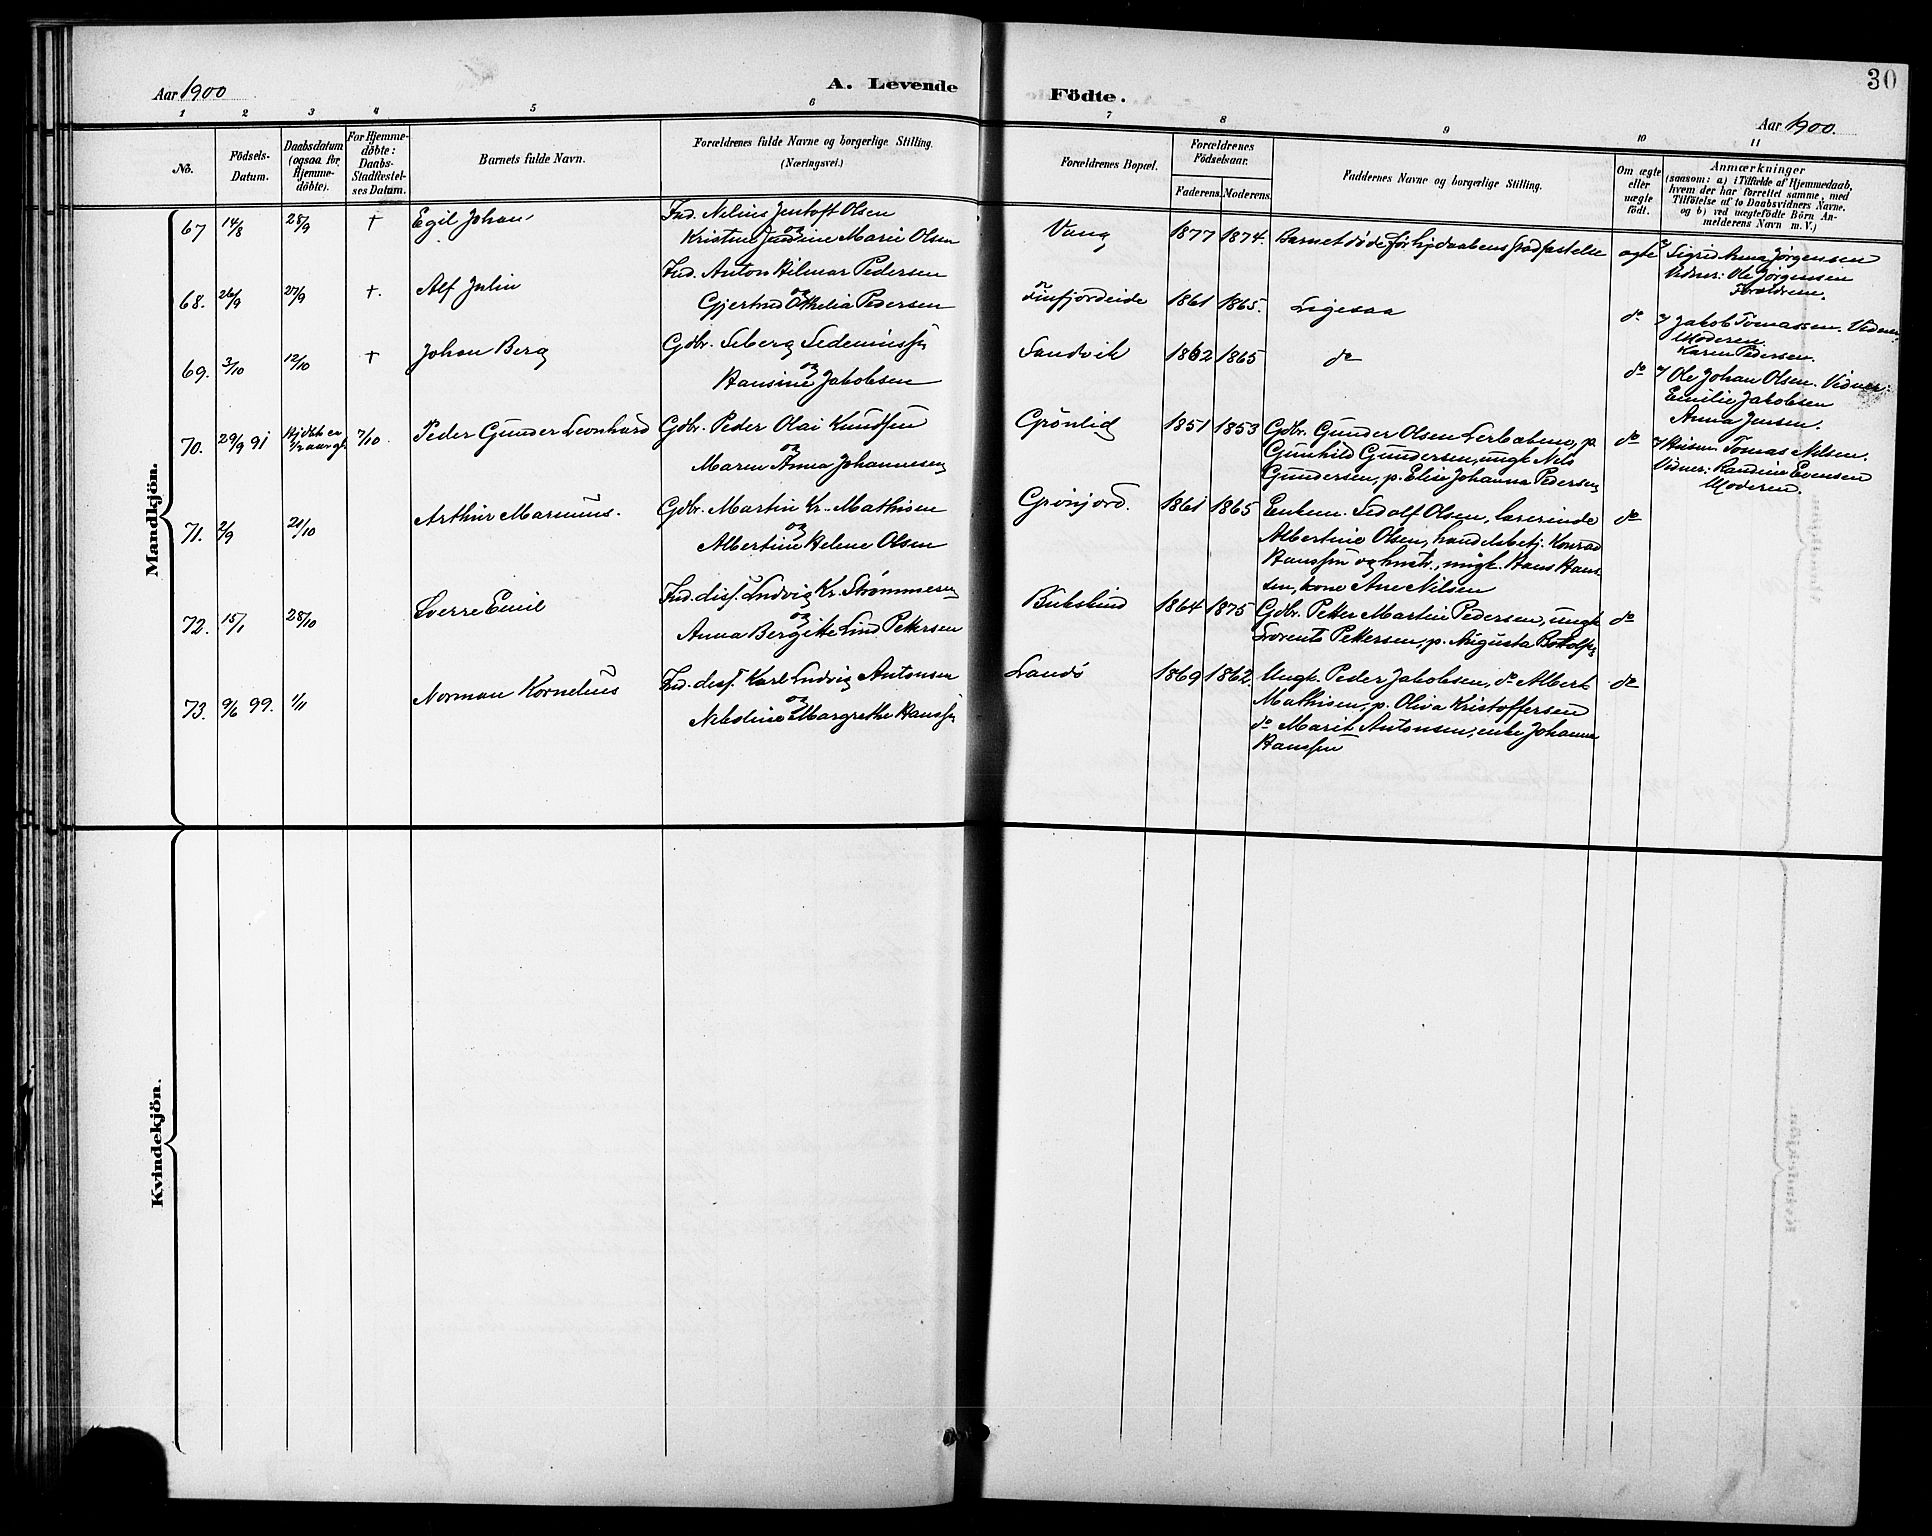 30
Aar 1900
A. Levende
Födte.
Aar 1900.
1 2 3 4 5 6 7 8 9 10 11
No.
Födsels-
Datum.
Daabsdatum
(ogsaa for
Hjemme-
döbte).
For Hjemme-
döbte:
Daabs-
Stadfæstel-
ses Datum.
Barnets fulde Navn.
Forældrenes fulde Navne og borgerlige Stilling.
(Næringsvei.)
Forældrenes Bopæl.
Forældrenes
Födselsaar.
Faderens. Moderens.
Faddernes Navne og borgerlige Stilling.
Om ægte
eller
uægte
födt.
Anmærkninger
(saasom: a) i Tilfælde af Hjemmedaab,
hvem der har forrettet samme, med
Tilföielse af to Daabsvidners Navne.
og b) ved uægtefödte Börn An-
melderens Navn m. V.)
Mandkjön.
67 14/8 28/9 † Egil Johan
Ind. Nelius Jentoft Olsen
og
Kristine Marie Olsen
Vang 1877 1874. Barnet døde før hjdaabens stadfæstelse ægte
Sigrid Anna Jørgensen
Vidner: Ole Jørgensen
Forældrene.
68. 26/9 27/9 †. Alf Julin
Ind. Anton Hilmar Pedersen
og
Gjertrud Othelia Pedersen
Finfjordeide 1861 1865. Ligesaa do
Jakob Tomassen. Vidner:
Moderen.
Karen Pedersen.
69. 3/10 12/10 † Johan Berg
Gdbr. Seberg
og
Hansine Jakobsen
Sandvik 1862 1865 do do
Ole Johan Olsen. Vidner:
Emilie Jakobsen
Anna Jensen.
70. 29/9 91 Hjdøbt ca
1/2 aar gl. 7/10. Peder Gunder Leonhard
Gdbr. Peder Olai Knudsen
og
Maren Anna Johannesen
Grönlid 1851 1853 Gdbr. Gunder Olsen p.
Gunhild Gundersen, ungk. Nils
Gundersen, p. Elise Johanna Pedersen
do
Tomas Nilsen.
Vidner: Randine Evensen
Moderen.
71. 2/9 21/10 Arthur Marinius.
Gdbr. Martin Kr. Mathisen
og
Albertine Helene Olsen
Grönjord. 1861 1865 Enkem. Sedolf Olsen, lærerinde
Albertine Olsen, handelsbetj. Konrad
Hanssen og hustr., ungk. Hans Hans-
sen, kone Ane Nilsen
do
72. 15/1 28/10 Sverre Emil
Ind. diss. Ludvig Kr. Strømmesen
og
Anna Bergitte Lind Pettersen
Bukskind 1864 1875 Gdbr. Petter Martin Pedersen, ungk.
Lorents Pettersen, p. Augusta
do
73. 9/6 99. 1/11 Norman Kornelius
Ind. diss. Karl Ludvig Antonsen
og
Nikoline Margrethe Hanssen
Sandö 1869 1862. Ungk. Peder Jakobsen, do Albert
Mathisen, p. Oliva Kristoffersen
do Marit Antonsen, enke Johanna
Hanssen
do
Kvindekjön.